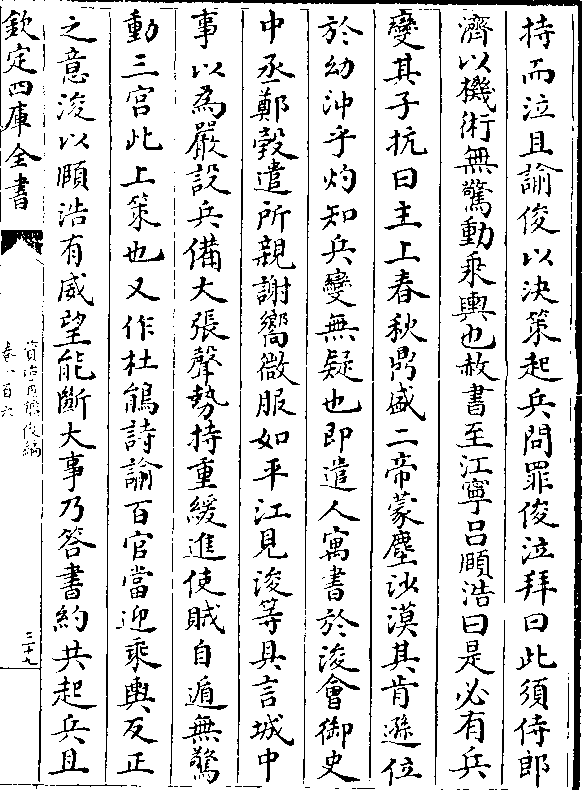 持而泣且諭俊以決策起兵問罪俊泣拜曰此須侍郎
濟以機術無驚動乘輿也赦書至江寧吕頤浩曰是必有兵
變其子抗曰主上春秋鼎盛二帝蒙塵沙漠其肯遜位
於幼沖乎灼知兵變無疑也即遣人寓書於浚會御史
中丞鄭瑴遣所親謝嚮微服如平江見浚等具言城中
事以為嚴設兵備大張聲勢持重緩進使賊自遁無驚
動三宫此上策也又作杜鵑詩諭百官當迎乘輿反正
之意浚以頤浩有威望能斷大事乃答書約共起兵且
欽定四庫全書
資治通鑑後編
卷一百六
三十九